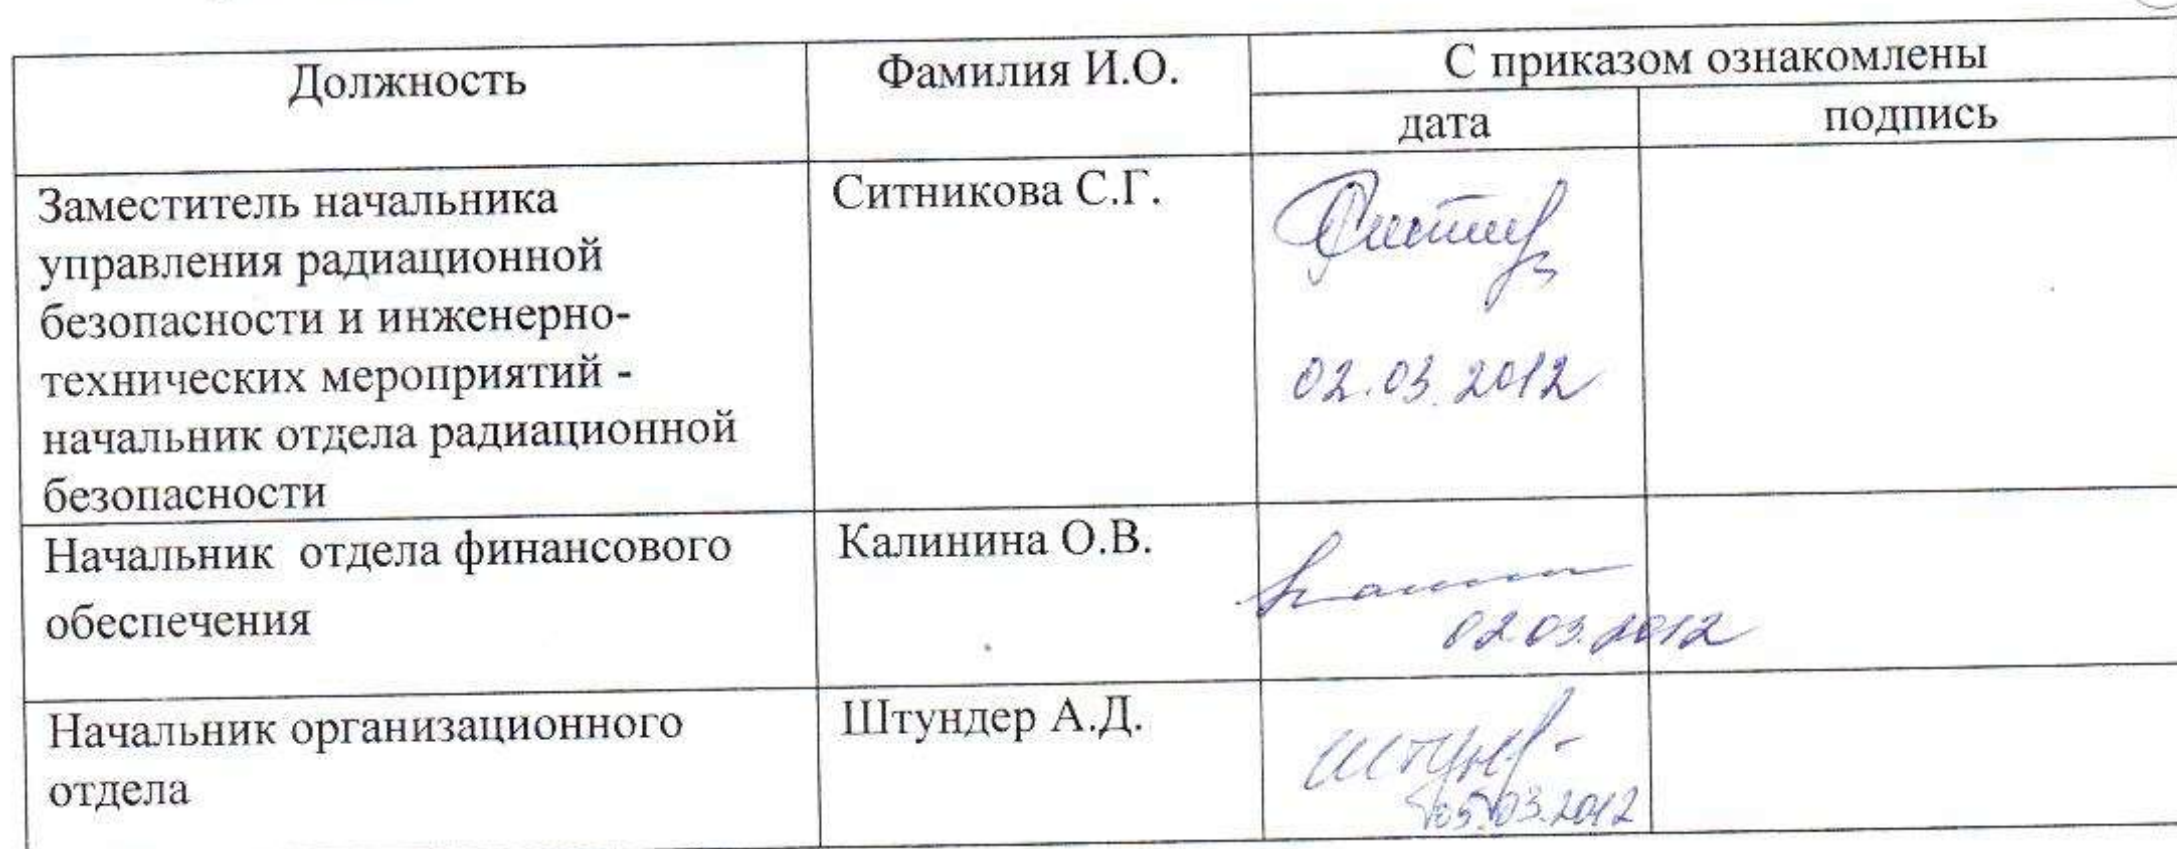 Должность
Фамилия И.О.
С приказом ознакомлены
дата
подпись
Заместитель начальника
управления радиационной
безопасности и инженерно-
технических мероприятий -
начальник отдела радиационной
безопасности
Ситникова С.Г.
02.03.2012
Начальник отдела финансового
обеспечения
Калинина О.В.
02.03.2012
Начальник организационного
отдела
Штундер А.Д.
05.03.2012